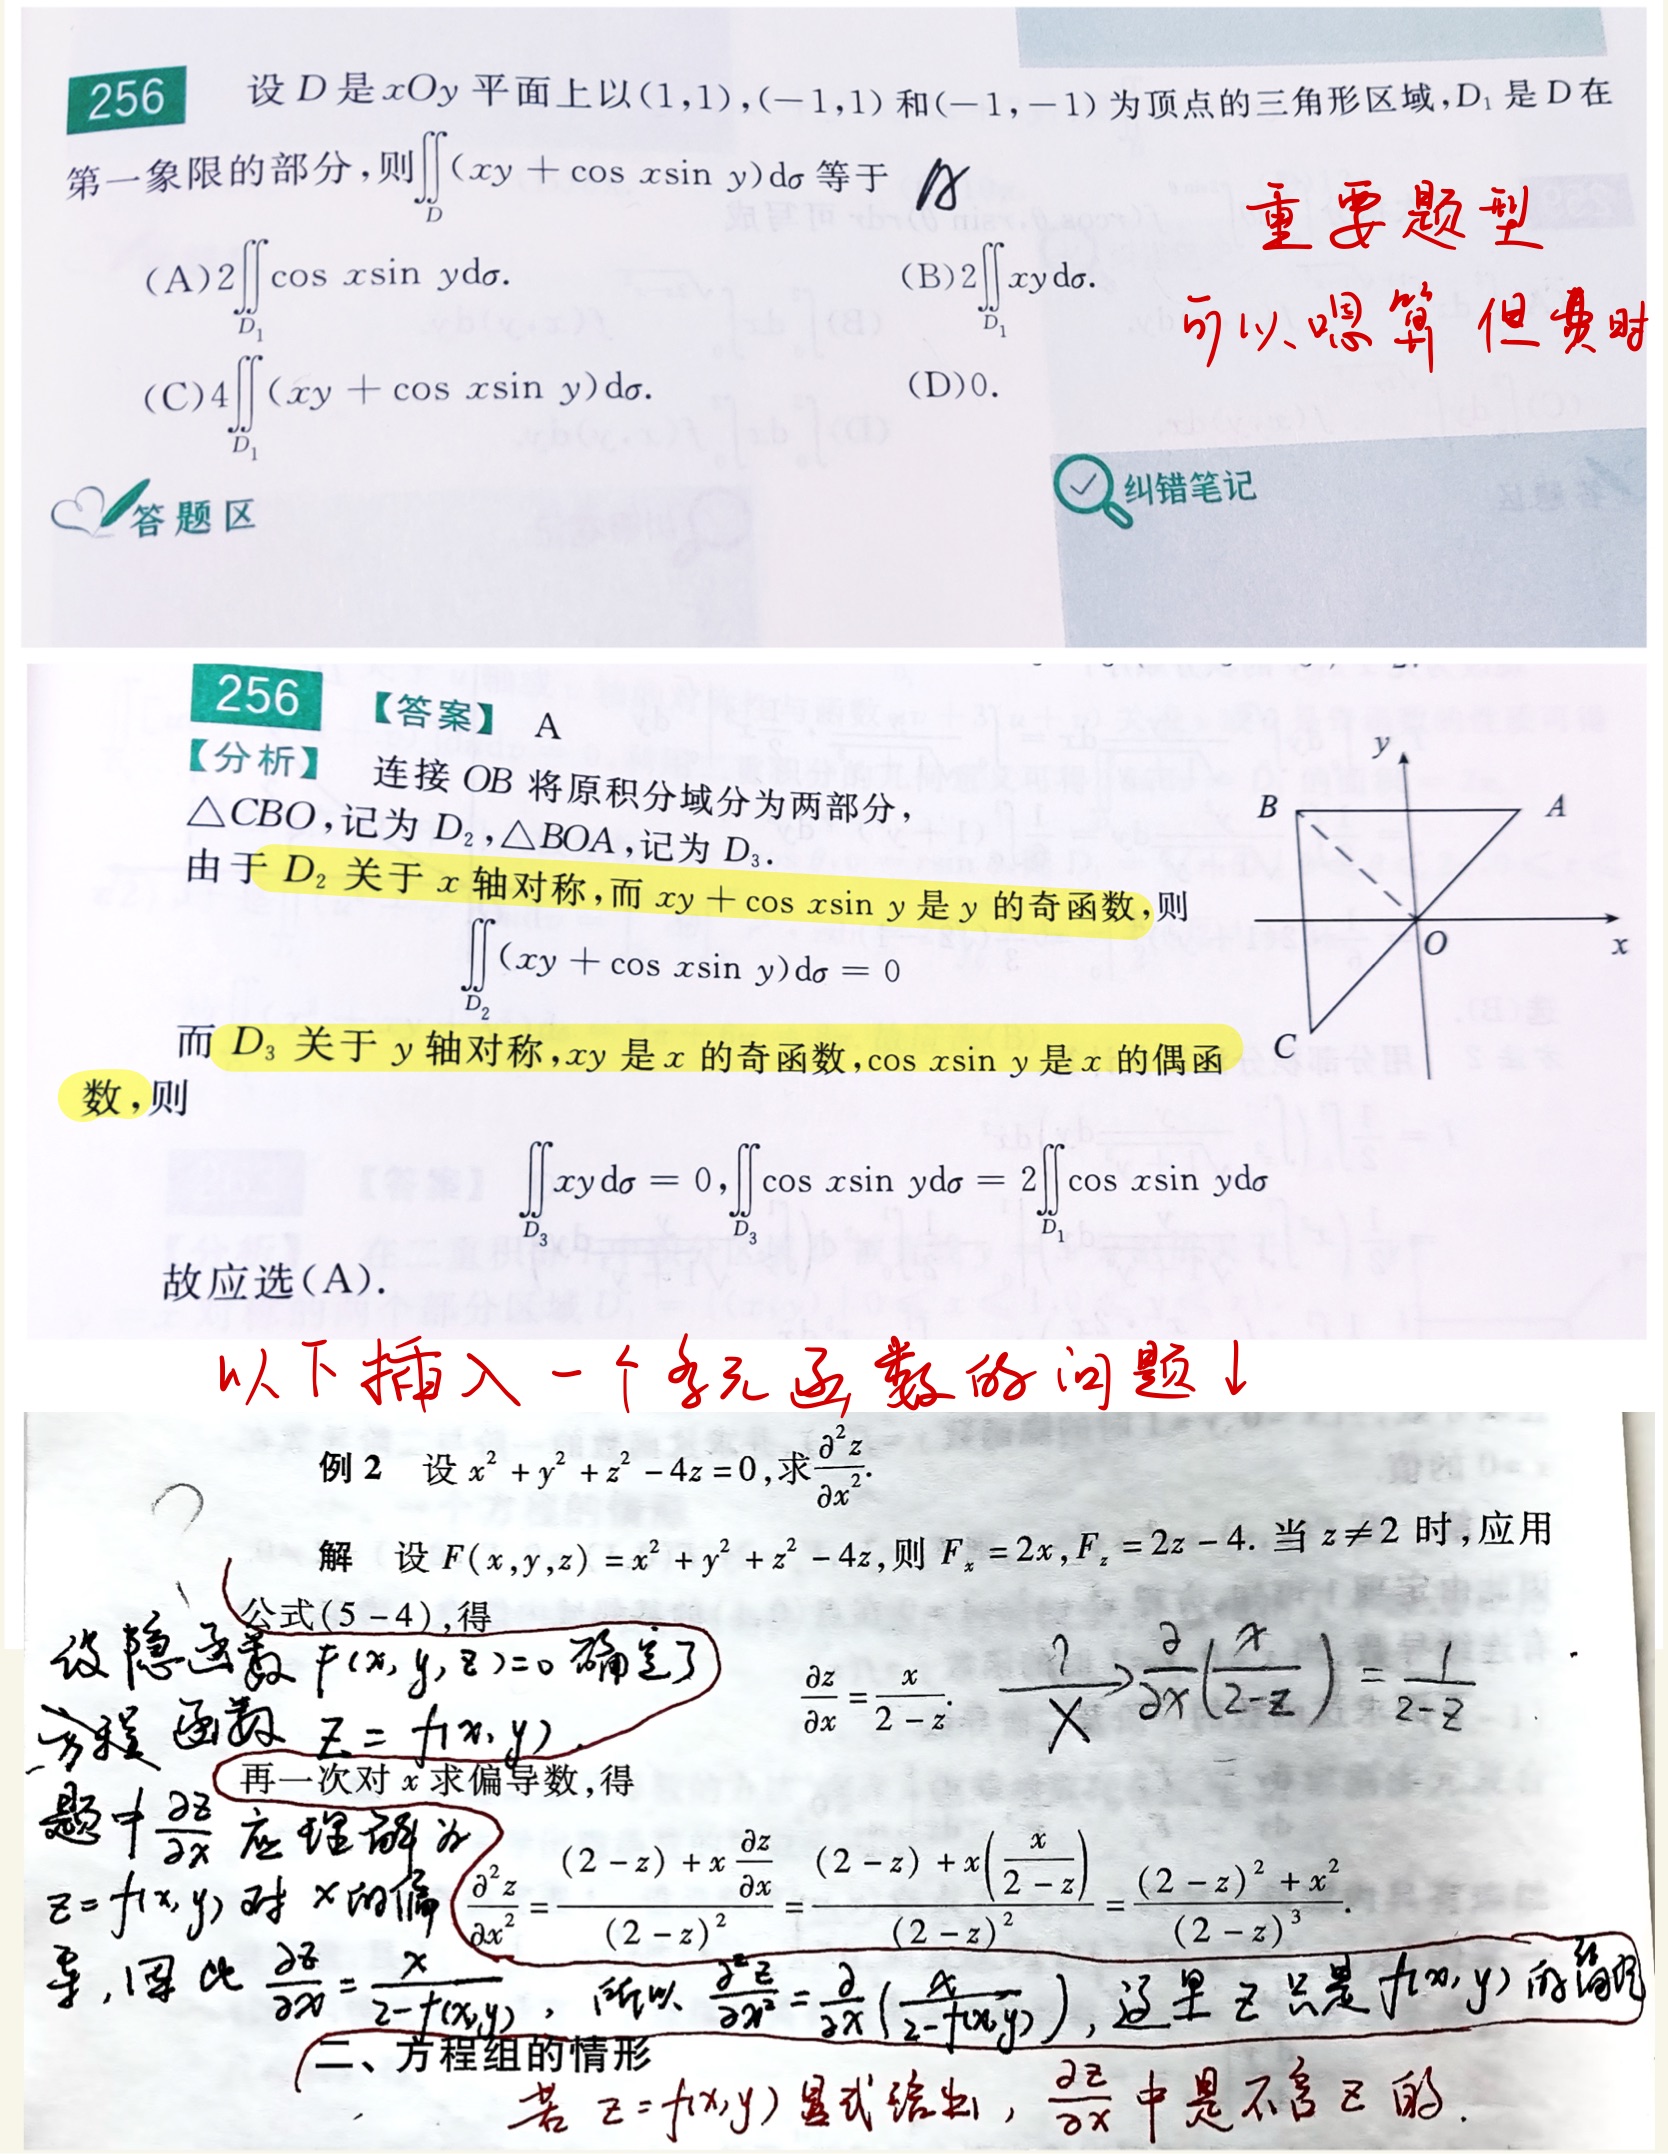 256 设 D 是 xOy 平面上以(1,1),(−1,1) 和(−1,−1) 为顶点的三角形区域,D₁ 是 D 在
第一象限的部分,则∬_D (xy + cos xsin y)dσ 等于 A
(A)2∬_{D₁} cos xsin ydσ. (B)2∬_{D₁} xydσ.
(C)4∬_{D₁} (xy + cos xsin y)dσ. (D)0.
重要题型
可以嗯算 但费时
答题区
纠错笔记
256 【答案】 A
【分析】 连接 OB 将原积分域分为两部分,
△CBO,记为 D₂,△BOA,记为 D₃.
由于 D₂ 关于 x 轴对称,而 xy + cos xsin y 是 y 的奇函数,则
∬_{D₂} (xy + cos xsin y)dσ = 0
而 D₃ 关于 y 轴对称,xy 是 x 的奇函数,cos xsin y 是 x 的偶函
数,则
∬_{D₃} xydσ = 0,∬_{D₃} cos xsin ydσ = 2∬_{D₁} cos xsin ydσ
故应选(A).
y
B A
O x
C
以下插入一个多元函数的问题↓
例 2 设 x² + y² + z² − 4z = 0,求 ∂²z/∂x².
?
解 设 F(x,y,z) = x² + y² + z² − 4z,则 Fₓ = 2x, F_z = 2z − 4. 当 z ≠ 2 时,应用
公式(5 − 4),得
设隐函数 F(x,y,z)=0 确定了
方程函数 z = f(x,y).
∂z/∂x = x/(2 − z). ?/X → ∂/∂x (x/(2−z)) = 1/(2−z)
再一次对 x 求偏导数,得
题中 ∂z/∂x 应理解为
z=f(x,y) 对 x 的偏
∂²z/∂x² = ((2 − z) + x ∂z/∂x)/(2 − z)² = ((2 − z) + x(x/(2 − z)))/(2 − z)² = ((2 − z)² + x²)/(2 − z)³.
导,因此 ∂z/∂x = x/(2−f(x,y)), 所以 ∂²z/∂x² = ∂/∂x (x/(2−f(x,y))), 这里 z 只是 f(x,y) 的缩写
二、方程组的情形
若 z=f(x,y) 显式给出, ∂z/∂x 中是不含 z 的.